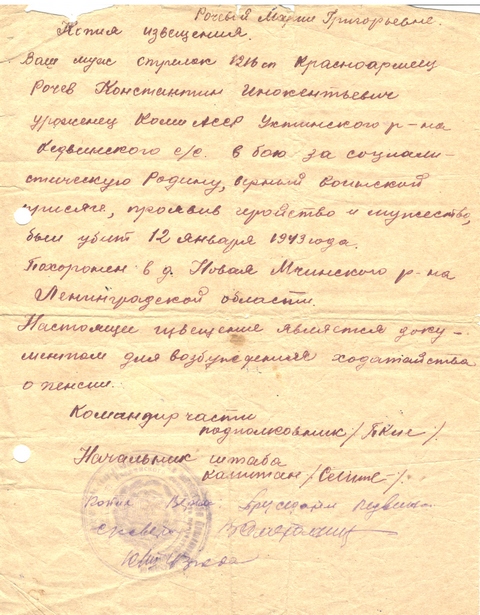 Рочевой Марии Григорьевне.
Копия извещения.
Ваш муж стрелок 1216 сп Красноармеец
Рочев Константин Инокентьевич
уроженец Коми АССР Ухтинского р-на
Кедвинского с/с. в бою за социали-
стическую Родину, верный воинской
присяге, проявив геройство и мужество,
был убит 12 января 1943 года.
Похоронен в д. Новая Мгинского р-на
Ленинградской области.
Настоящее извещение является доку-
ментом для возбуждения ходатайства
о пенсии.
Командир части
подполковник /
Начальник штаба
капитан /
Копия верна